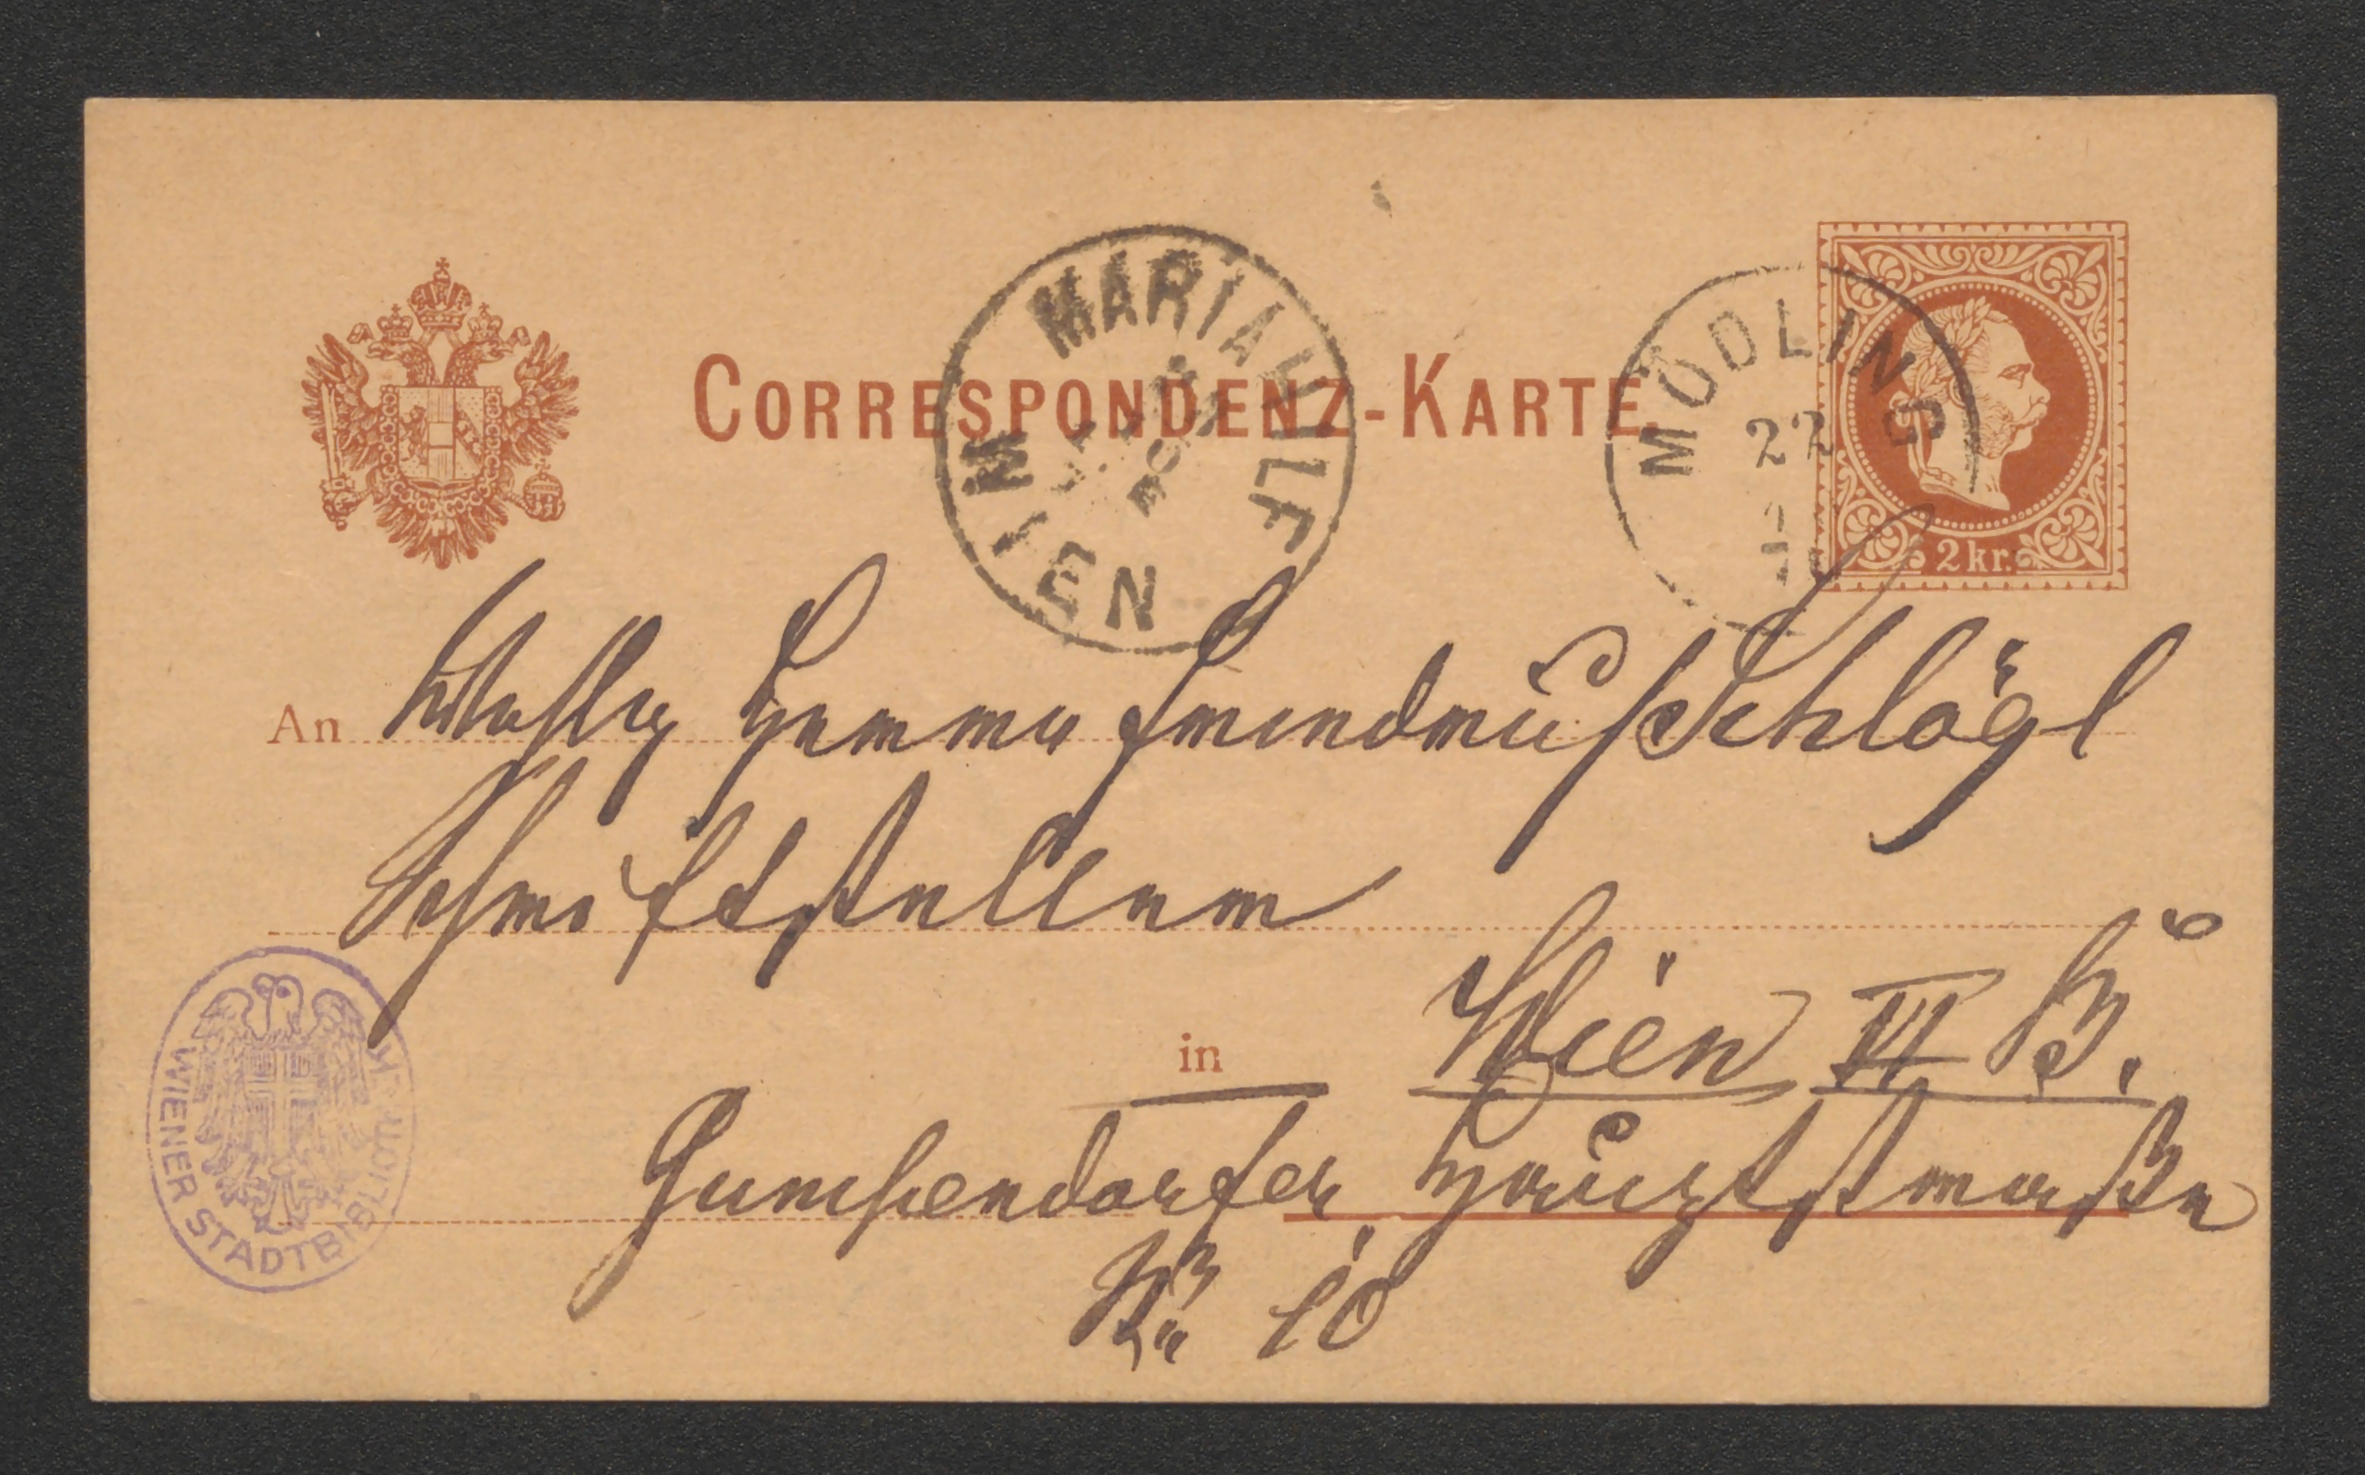 CORRESPONDENZ-KARTE
MARIAHILF
WIEN
MÖDLING
22
2 kr.
An Wohlg Herrn Freindruf Schlögl
Schriftsteller
in Wien VI B.
Gumpendorfer Hauptstraße
Nr. 10
WIENER STADTBIBLIOTHEK